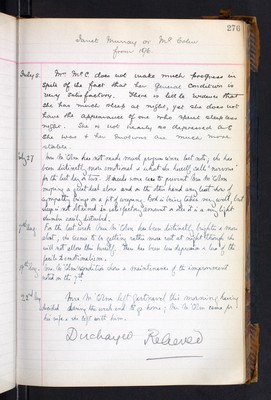 276
Janet Murray or McC
from 1896.
July 8. Mrs McC does not make much progress in
spite of the fact that her general Condition is
very Satisfactory. There is little evidence that
she has much sleep at night, yet she does not
have the appearance of one who spent sleepless
nights. She is not nearly so depressed as
she was & her emotions are much more
stable.
July 27 has not made much progress since last note; she has
been distinctly more emotional & what she herself calls "nervous"
for the last week or two. It needs some care to prevent
enjoying a just deal alone and on the other hand any least show of
sympathy brings on a fit of weeping. Food is being taken very well, but
sleep is not attained in satisfactory amount & also it is a very light
slumber easily disturbed.
7th Aug. For the last week has been distinctly brighter & more
alert, she seems to be getting rather more rest at night though she
will not allow this herself. There has been less depression & less of the
emotionalism.
17th Aug. condition shows a maintenance of the improvement
noted on the 7th.
23rd Aug. Mrs left Gartnavel this morning having
decided during the week end to go home; came for
his wife & she left with him.
Discharged Relieved